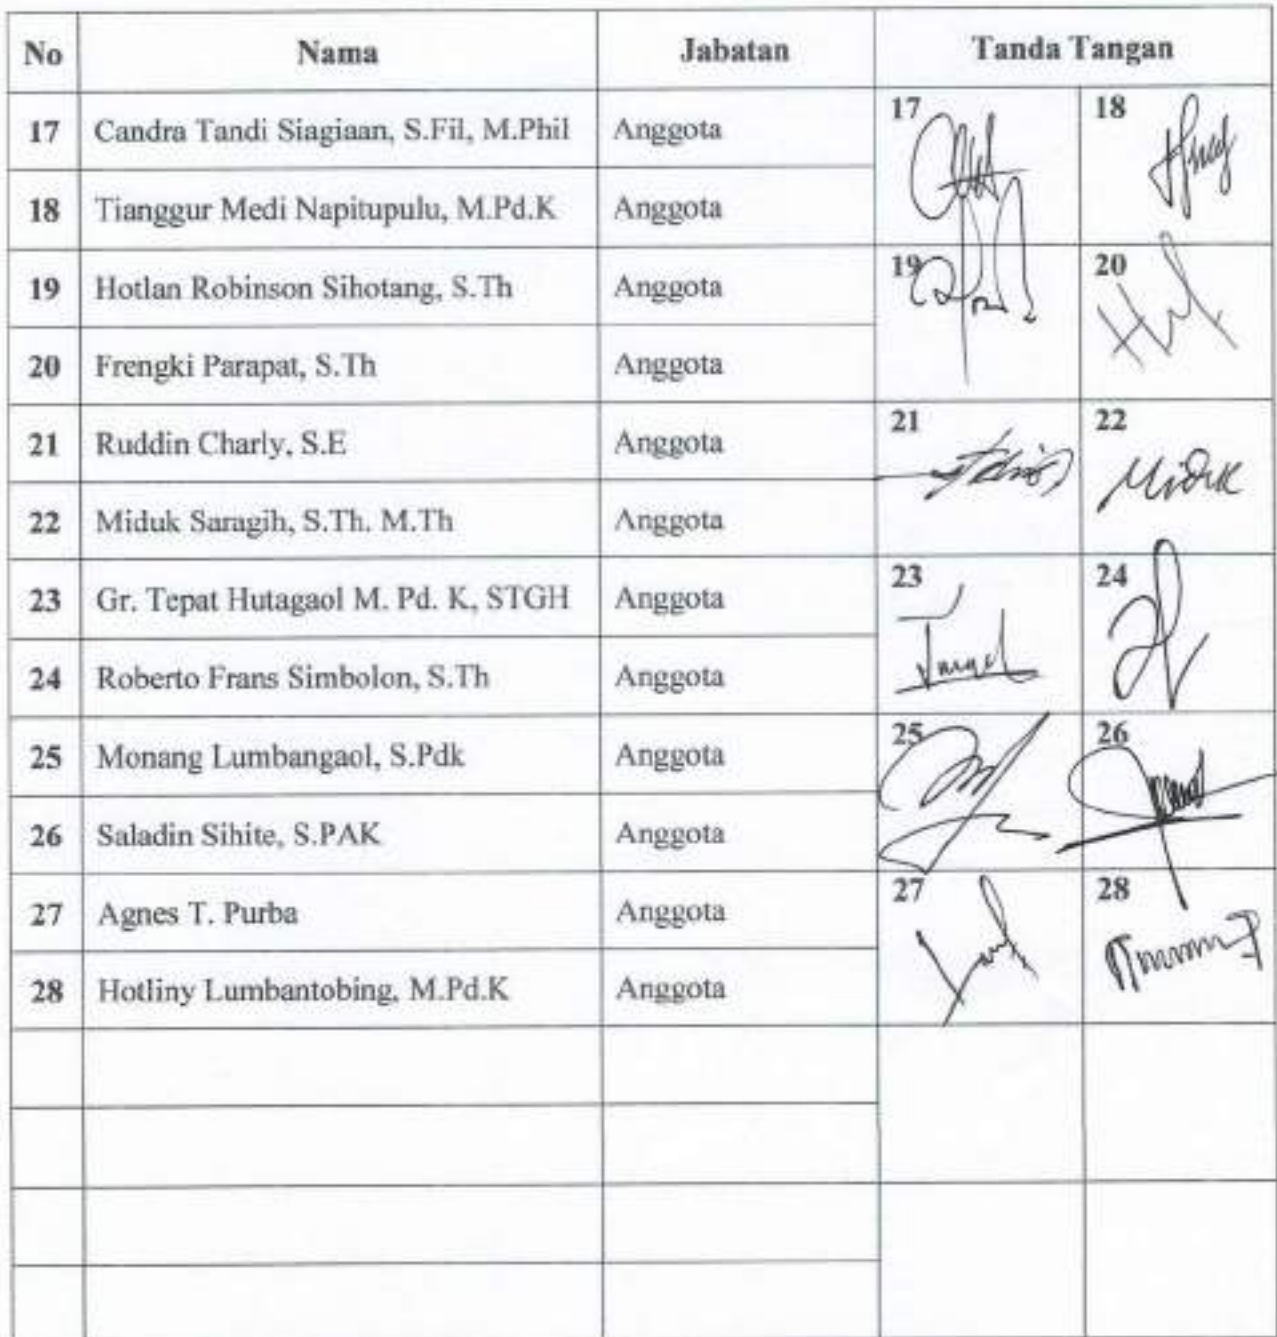 No Nama Jabatan Tanda Tangan
17 Candra Tandi Siagiaan, S.Fil, M.Phil Anggota 17 18
18 Tianggur Medi Napitupulu, M.Pd.K Anggota
19 Hotlan Robinson Sihotang, S.Th Anggota 19 20
20 Frengki Parapat, S.Th Anggota
21 Ruddin Charly, S.E Anggota 21 22
22 Miduk Saragih, S.Th. M.Th Anggota Miduk
23 Gr. Tepat Hutagaol M. Pd. K, STGH Anggota 23 24
24 Roberto Frans Simbolon, S.Th Anggota
25 Monang Lumbangaol, S.Pdk Anggota 25 26
26 Saladin Sihite, S.PAK Anggota
27 Agnes T. Purba Anggota 27 28
28 Hotliny Lumbantobing, M.Pd.K Anggota